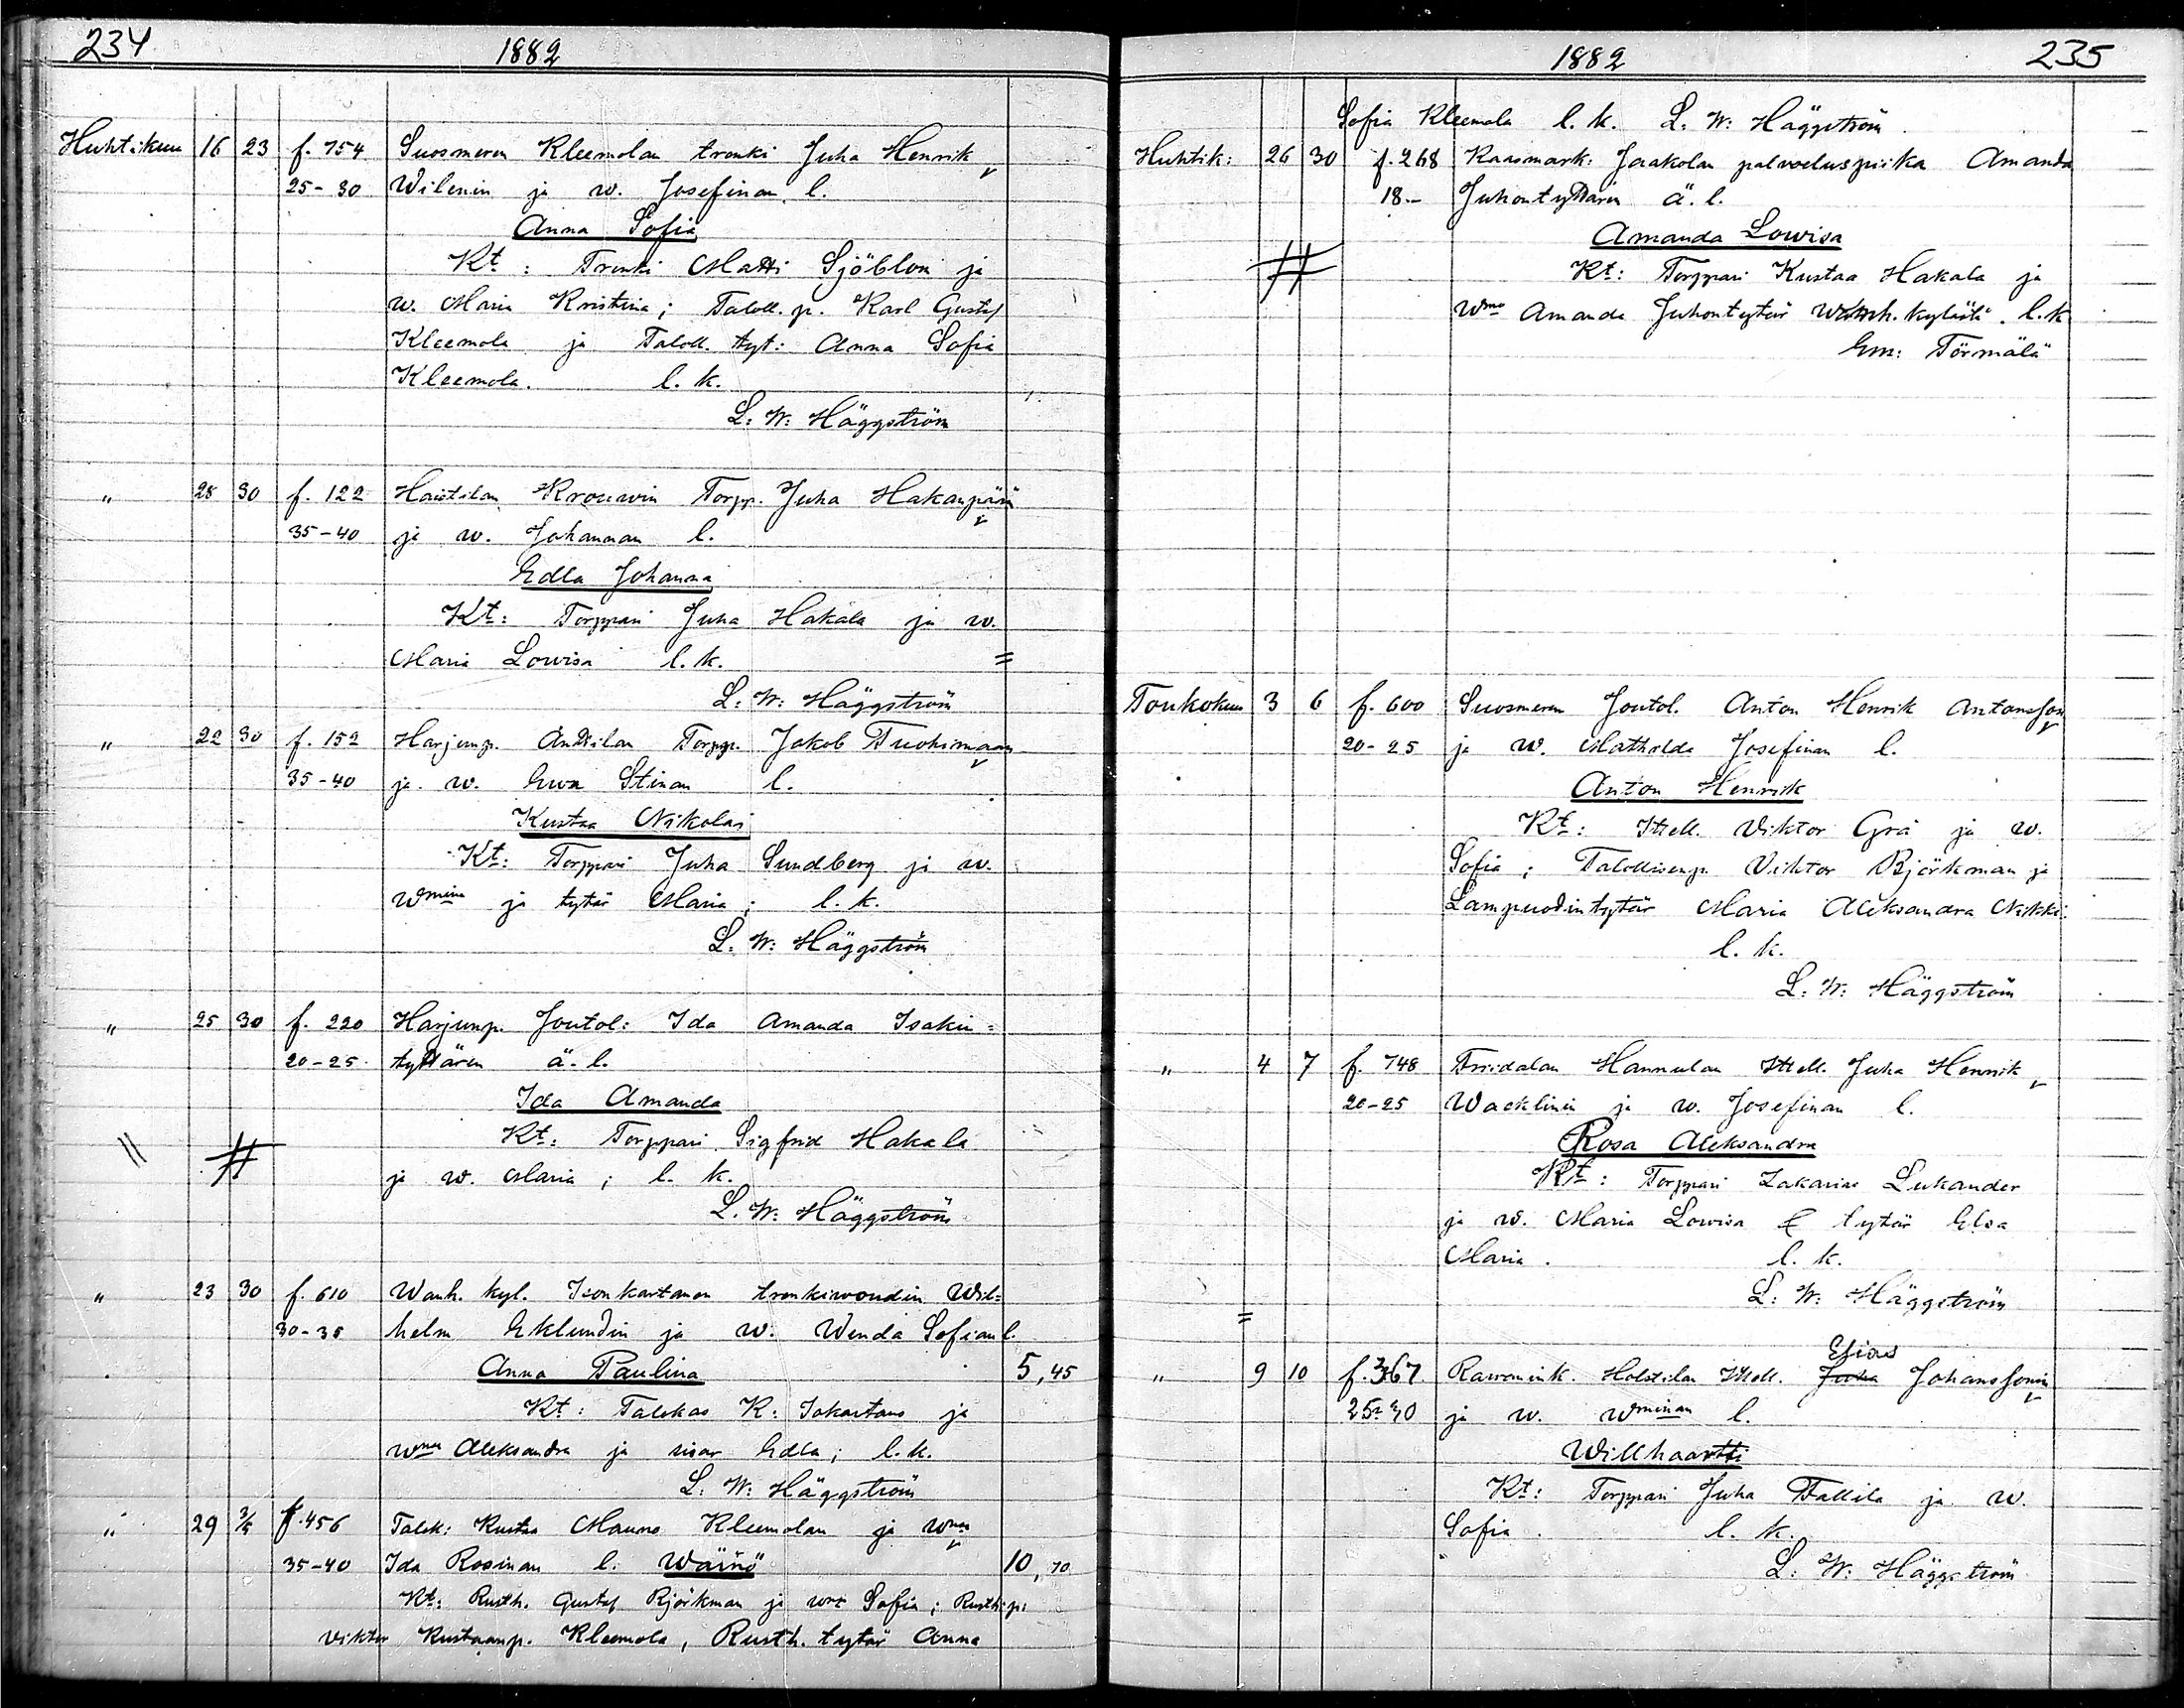 234
1882
Huhtikuu 16 23 f. 754 Suosmeren Kleemolan trenki Juha Henrik
25-30 Wilenin ja w. Josefinan l.
Anna Sofia
Kt: Trenki Matti Sjöblom ja
w. Maria Kristina; Taloll. p. Karl Gustaf
Kleemola ja Taloll. tyt: Anna Sofia
Kleemola. l. k.
L: W: Häggström
" 28 30 f. 122 Haistilan Krouwin Torpp. Juha Hakanpään
35-40 ja w. Johannan l.
Edla Johanna
Kt: Torppari Juha Hakala ja w.
Maria Lowisa l. k. =
L: W: Häggström
" 22 30 f. 152 Harjunp. Anttilan Torpp. Jakob Tuohimaan
35-40 ja w. Ewa Stinan l.
Kustaa Nikolai
Kt: Torppari Juha Sundberg ja w.
Wmina ja tytär Maria; l. k.
L: W: Häggström
" 25 30 f. 220 Harjunp. Joutol: Ida Amanda Isakin=
20-25 tyttären ä. l.
Ida Amanda
Kt: Torppari Sigfrid Hakala
// # ja w. Maria; l. k.
L. W: Häggström
" 23 30 f. 610 Wanh. kyl. Isonkartanon trenkiwoudin Wil=
30-35 helm Eklundin ja w. Wenda Sofian l.
Anna Paulina 5,45
Kt: Talokas K: Isokartano ja
wma Aleksandra ja sisar Edla; l. k.
L: W: Häggström
" 29 2/5 f. 456 Talok: Kustaa Mauno Kleemolan ja wmo
35-40 Ida Rosinan l: Wäinö 10,70
Kt: Rusth. Gustaf Björkman ja wmo Sofia; Rusth:p:
Viktor Kustaanp. Kleemola, Rusth. tytär Anna
1882
235
Sofia Kleemola l. k. L: W: Häggström
Huhtik: 26 30 f. 268 Kaasmark: Jaakolan palveluspiika Amanda
18.- Juhontyttären ä. l.
Amanda Lowisa
# Kt: Torppari Kustaa Hakala ja
Wmo Amanda Juhontytär Wanh. kylästä. l. k
Em: Törmälä
Toukokuu 3 6 f. 600 Suosmeren Joutol. Anton Henrik Antonsson
20-25 ja w. Mathilda Josefinan l.
Anton Henrik
Kt: Ittell. Viktor Grå ja w.
Sofia; Talollisenp. Viktor Björkman ja
Lampuodintytär Maria Aleksandra Nikki:
l. k.
L: W: Häggström
" 4 7 f. 748 Friidalan Hannulan Ittell. Juha Henrik
20-25 Wacklinin ja w. Josefinan l.
Rosa Aleksandra
Kt: Torppari Zakarias Lukander
ja w. Maria Lowisa & tytär Elsa
Maria. l. k.
L: W: Häggström
=
Esias
" 9 10 f. 367 Rawanink. Holstilan Ittell. Juha Johanssonin
25-30 ja w. Wminan l.
Willhaartti
Kt: Torppari Juha Tallila ja w.
Sofia. l. k.
L: W: Häggström